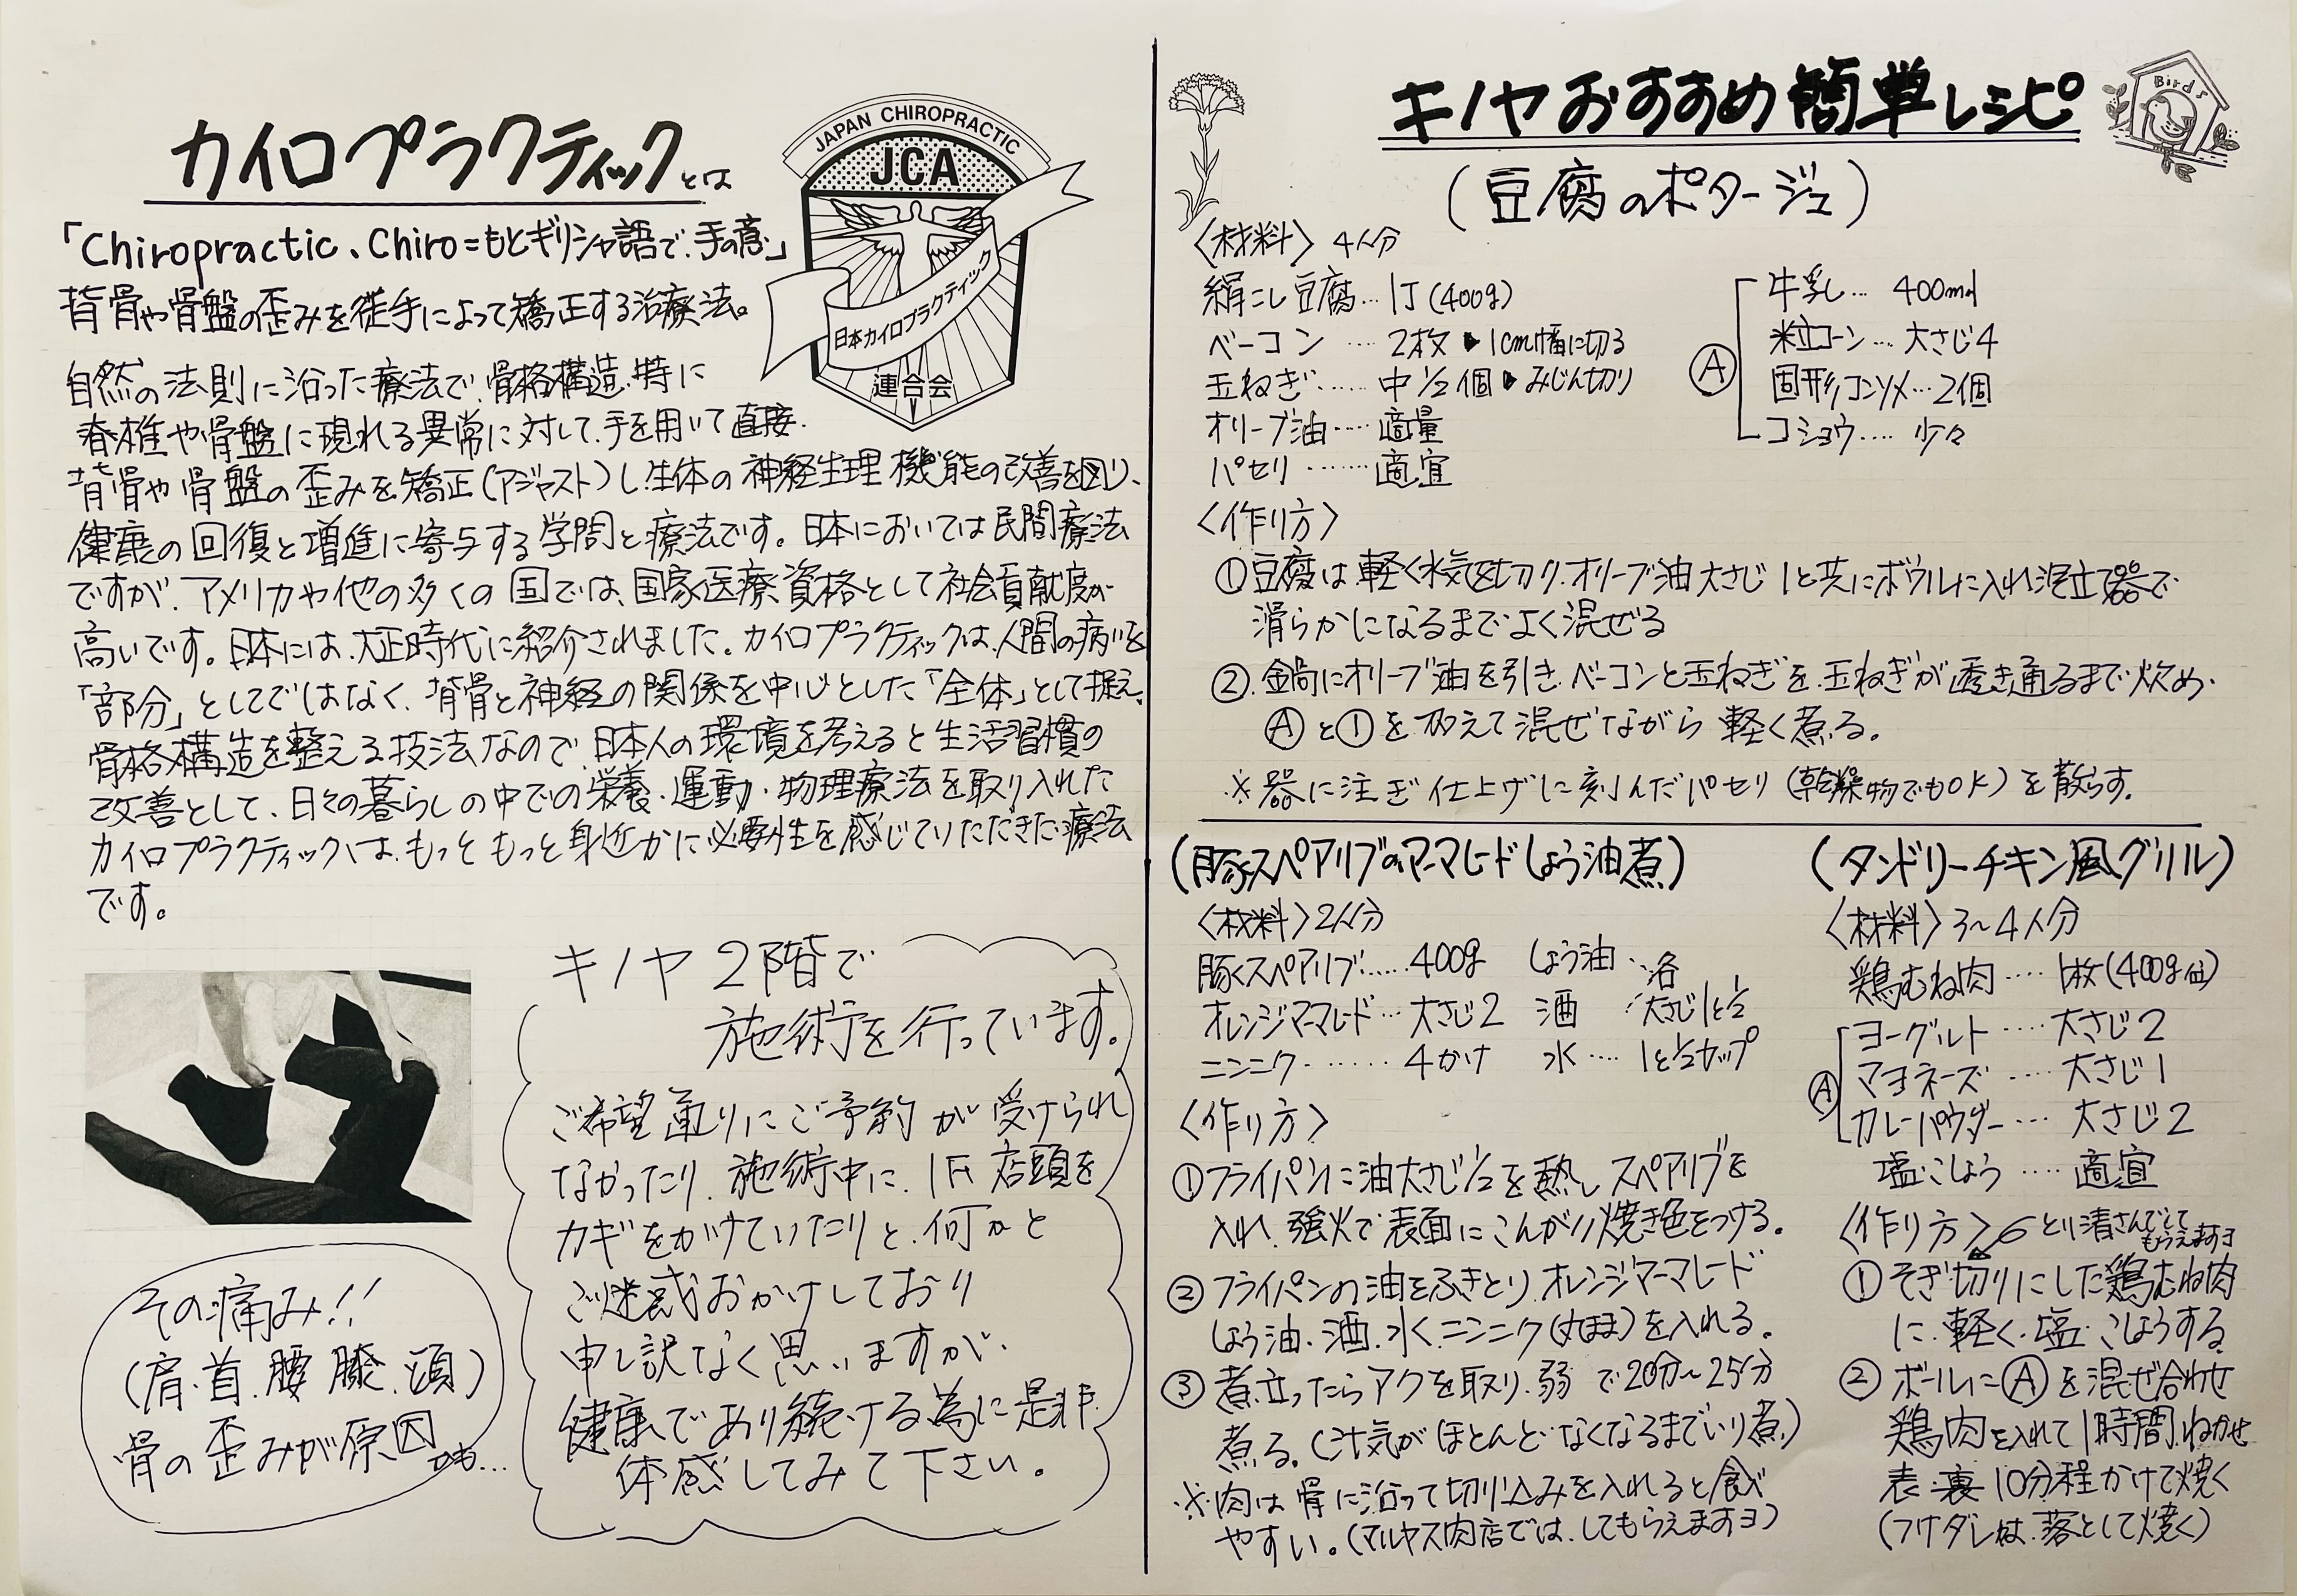 カイロプラクティックとは
JAPAN CHIROPRACTIC
JCA
日本カイロプラクティック
連合会
「Chiropractic、Chiro=もとギリシャ語で、手の意」
背骨や骨盤の歪みを徒手によって矯正する治療法。
自然の法則に沿った療法で、骨格構造、特に
脊椎や骨盤に現れる異常に対して、手を用いて直接、
背骨や骨盤の歪みを矯正(アジャスト)し、生体の神経生理機能の改善を図り、
健康の回復と増進に寄与する学問と療法です。日本においては民間療法
ですが、アメリカや他の多くの国では、国家医療資格として社会貢献度が
高いです。日本には、大正時代に紹介されました。カイロプラクティックは、人間の病いを
「部分」としてではなく、背骨と神経の関係を中心とした「全体」として捉え、
骨格構造を整える技法なので、日本人の環境を考えると生活習慣の
改善として、日々の暮らしの中での栄養・運動・物理療法を取り入れた
カイロプラクティックは、もっともっと身近かに必要性を感じていただきたい療法
です。
キノヤ2階で
施術を行っています。
ご希望通りにご予約が受けられ
なかったり、施術中に、1F店頭を
カギをかけていたりと、何かと
ご迷惑おかけしており
申し訳なく思いますが、
健康であり続ける為に是非
体感してみて下さい。
その痛み!!
(肩、首、腰、膝、頭)
骨の歪みが原因かも…
キノヤおすすめ簡単レシピ
Birds
(豆腐のポタージュ)
〈材料〉4人分
絹こし豆腐…1丁(400g)
ベーコン……2枚▶1cm幅に切る
玉ねぎ……中1/2個▶みじん切り
オリーブ油……適量
パセリ……適宜
Ⓐ
牛乳…400ml
粒コーン…大さじ4
固形コンソメ…2個
コショウ…少々
〈作り方〉
①豆腐は軽く水気を切り、オリーブ油大さじ1と共にボウルに入れ泡立て器で
滑らかになるまでよく混ぜる
②鍋にオリーブ油を引き、ベーコンと玉ねぎを、玉ねぎが透き通るまで炊め、
Ⓐと①を加えて混ぜながら軽く煮る。
※器に注ぎ仕上げに刻んだパセリ(乾燥物でもOK)を散らす。
(豚スペアリブのマーマレードしょう油煮)
〈材料〉2人分
豚スペアリブ……400g
オレンジマーマレード…大さじ2
ニンニク……4かけ
しょう油…各
酒 大さじ1と1/2
水…1と1/2カップ
〈作り方〉
①フライパンに油大さじ1/2を熱しスペアリブを
入れ、強火で表面にこんがり焼き色をつける。
②フライパンの油をふきとり、オレンジマーマレード
しょう油、酒、水、ニンニク(丸まま)を入れる。
③煮立ったらアクを取り、弱で20分〜25分
煮る。(汁気がほとんどなくなるまでいり煮)
※肉は骨に沿って切り込みを入れると食べ
やすい。(マルヤス肉店では、してもらえますヨ)
(タンドリーチキン風グリル)
〈材料〉3~4人分
鶏むね肉……1枚(400g位)
Ⓐ
ヨーグルト……大さじ2
マヨネーズ……大さじ1
カレーパウダー…大さじ2
塩こしょう……適宜
〈作り方〉
とり清さんでして
もらえますヨ
①そぎ切りにした鶏むね肉
に、軽く、塩、こしょうする
②ボールにⒶを混ぜ合わせ
鶏肉を入れて1時間ねかせ
表、裏10分程かけて焼く
(つけダレは、落として焼く)